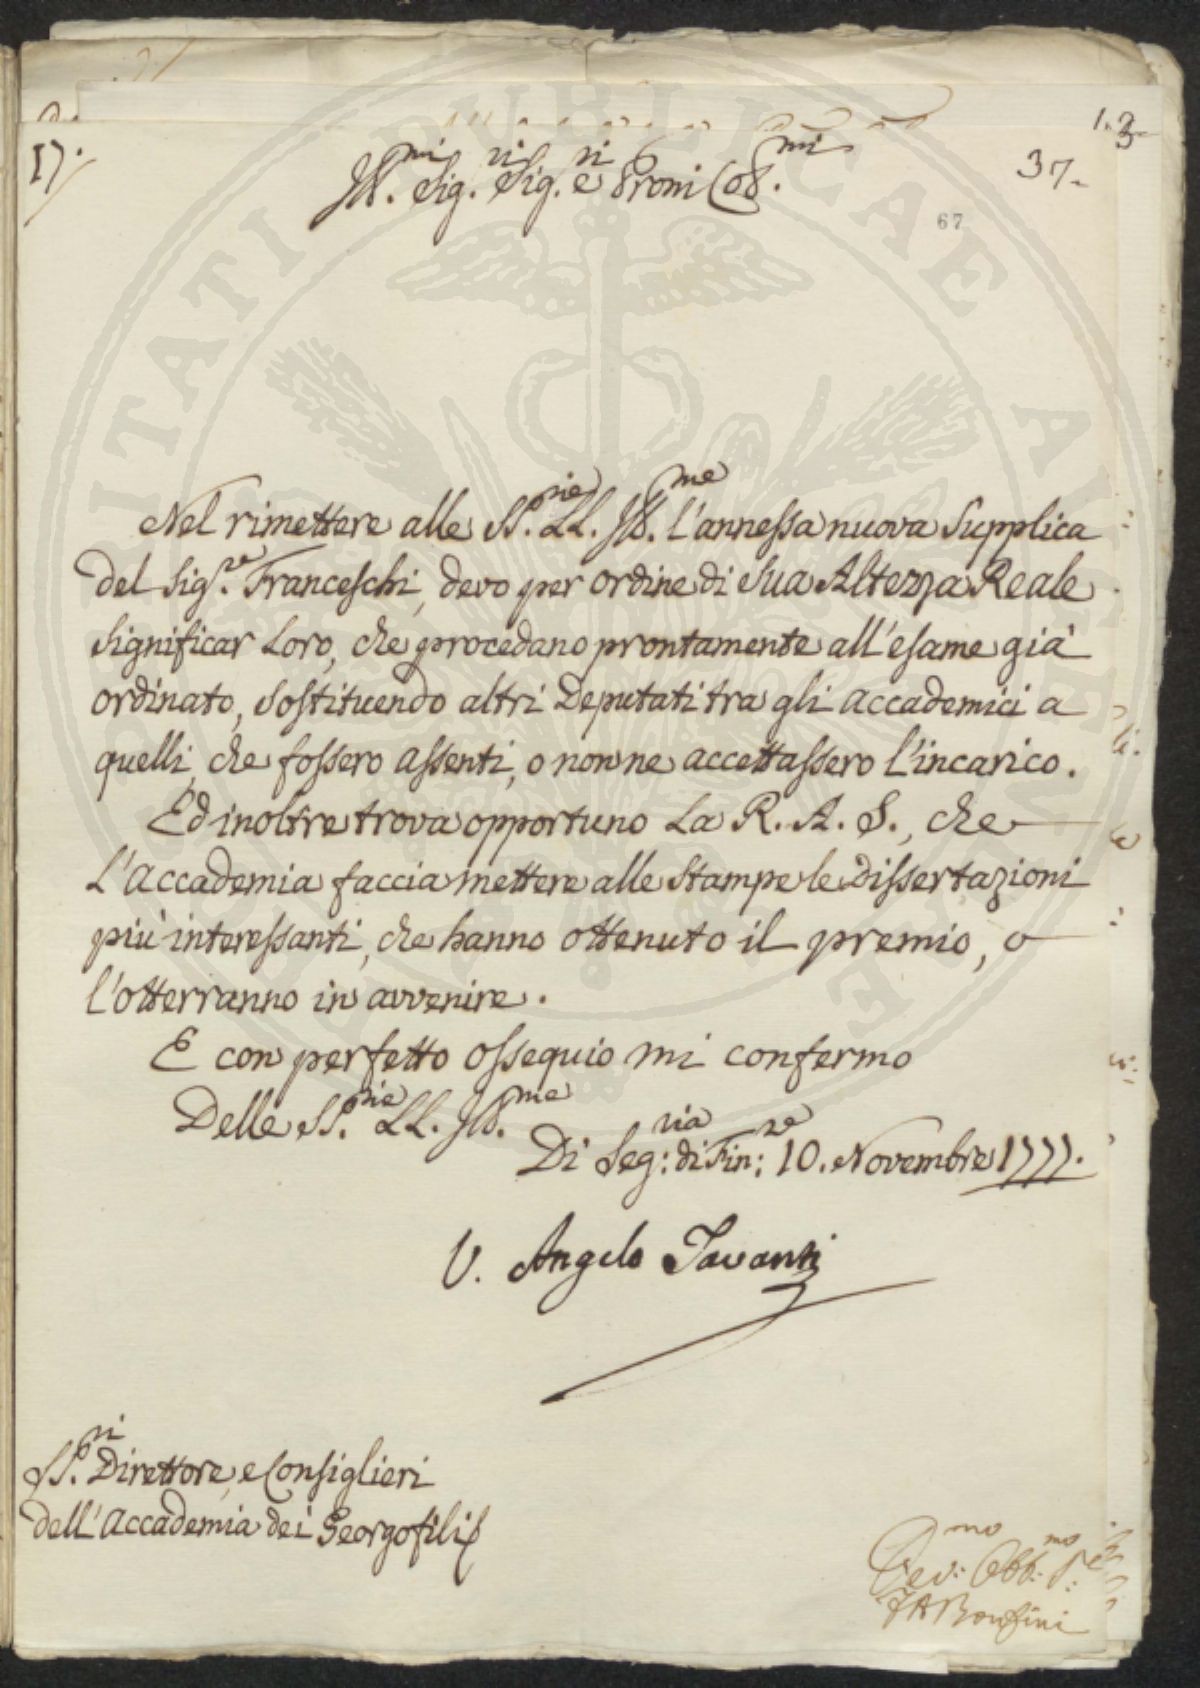 1. 3
17.
37.
67
Ill.mi Sig.ri Sig.ri e Proni Col.mi
Nel rimettere alle SS.rie LL. Ill.me l'annessa nuova Supplica
del Sig.re Franceschi, devo per ordine di Sua Altezza Reale
significar Loro, che procedano prontamente all'esame già
ordinato, sostituendo altri Deputati tra gli Accademici a
quelli, che fossero assenti, o non ne accettassero l'incarico.
Ed inoltre trova opportuno La R. A. S., che
l'Accademia faccia mettere alle Stampe le Dissertazioni
più interessanti, che hanno ottenuto il premio, o
l'otterranno in avvenire.
E con perfetto ossequio mi confermo
Delle SS.rie LL. Ill.me
Di Seg:ria di Fin:ze 10. Novembre 1777.
V. Angelo Tavanti
SS.ri Direttore, e Consiglieri
dell'Accademia dei Georgofili
Dev:mo Obb:mo
PUBLICAE